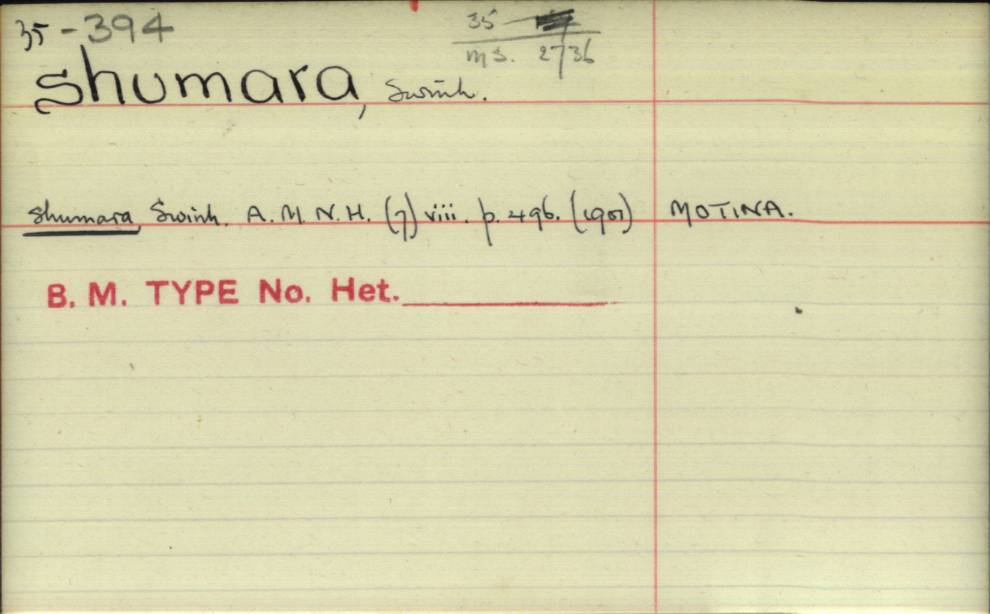 35-394
35
ms. 2736
shumara, Swinh.
shumara, Swinh. A. M. N. H. (7) viii. p. 496. (1901) MOTINA.
B. M. TYPE No. Het.